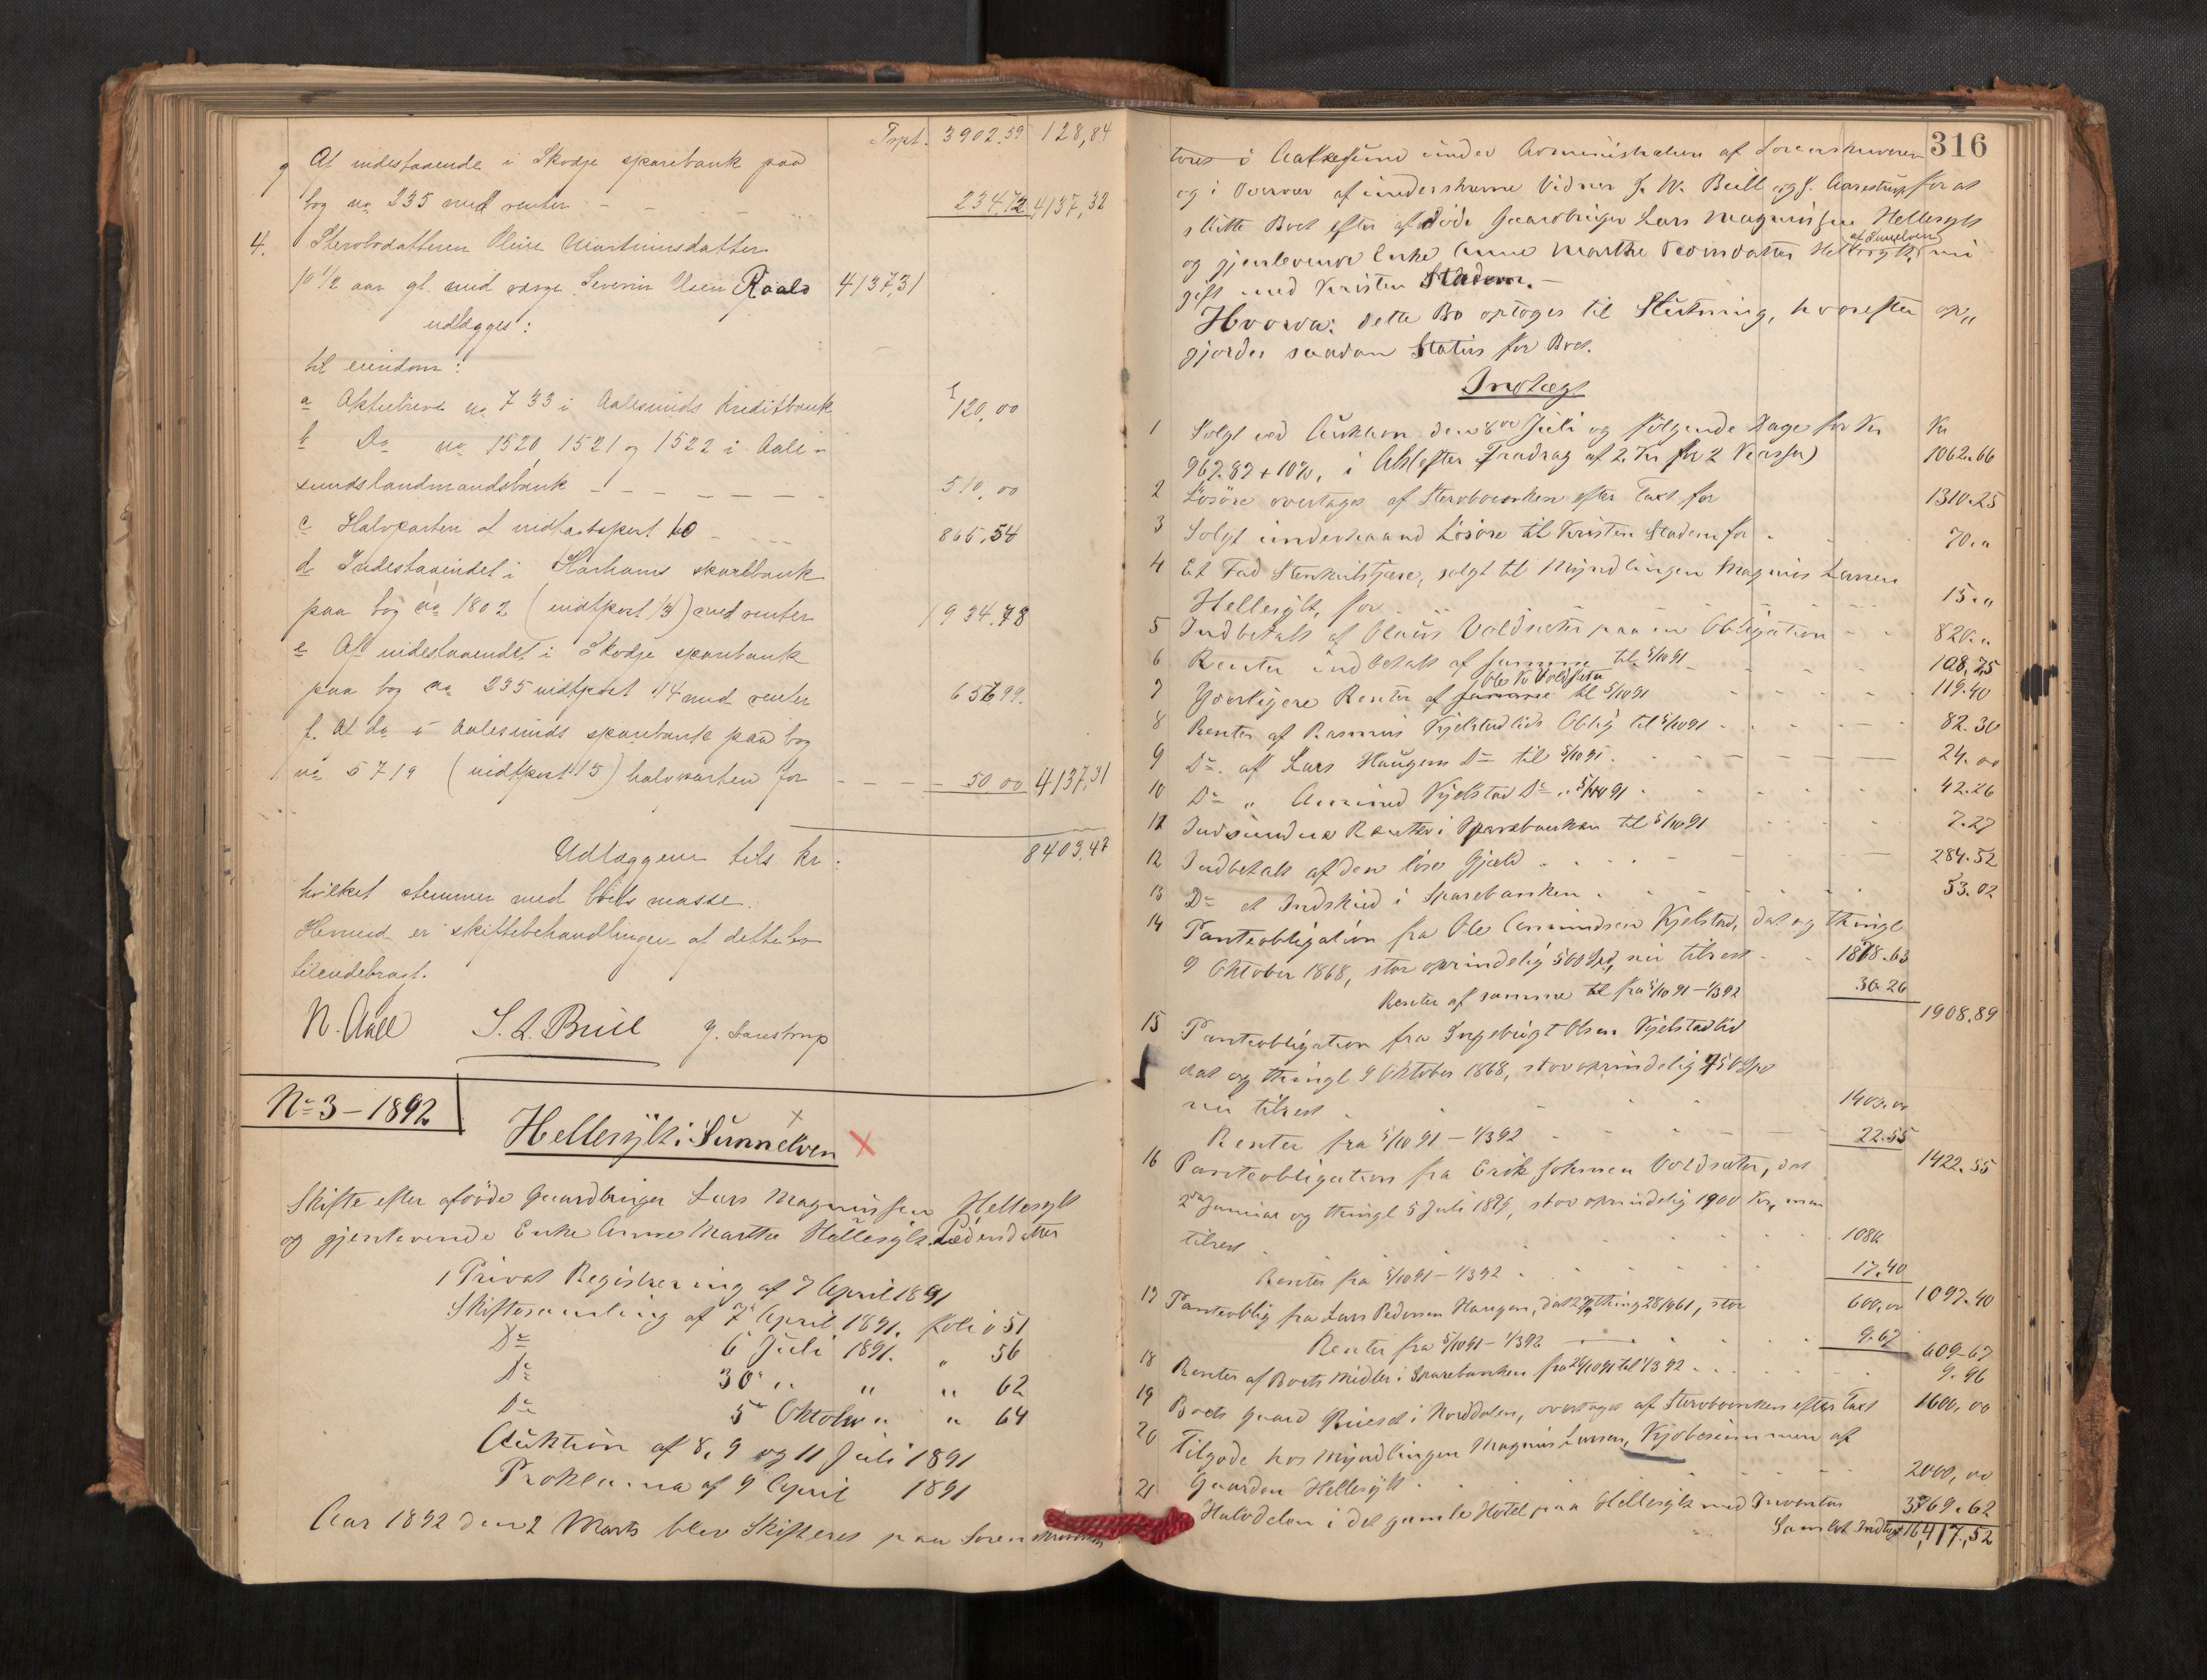 Trpt. 3902.59 128,84
g Af indestaaende i Skodje sparebank paa
bog no 235 med renter - - - 234.72 4137,32
4. Sterbodatteren Oline Martinusdatter
10 1/2 aar gl. med værge Severin Olsen Roald 4137,31
udlægges:
til eiendom:
a Aktiebrev no 733 i Aalesunds Kreditbank 120,00
b Do no 1520, 1521 og 1522 i Aale-
sunds landmandsbank - - - - - - - 510,00
c Halvparten af indtægtspost 10 - - - 865,54
d Indestaaendet i Harhams sparebank
paa bog no 1802 (indtpost 13) med renter 1934.78
e Af indestaaendet i Skodje sparebank
paa bog no 235 indtpost 14 med renter 656,99.
f. Af do i Aalesunds sparebank paa bog
no 5719 (indtpost 15) halvparten for - - - 50,00 4137,31
Udlæggene tils kr: 8403,47
hvilket stemmer med boets masse.
Hermed er skiftebehandlingen af dette bo
tilendebragt.
N. Aall S. A. Bull J. Aarestrup
No 3 - 1892
Hellesylt i Sunnelven
Skifte efter afdöde Gaardbruger Lars Magnussen Hellesylt
og gjenlevende Enke Anne Marthe Hellesylt Pedersdatter
1 Privat Registrering af 7 April 1891
Skiftesamling af 7de April 1891. folio 51
Do 6 Juli 1891. " 56
Do 30 " " " 62
Do 5 Oktober " " 64
Auktion af 8, 9 og 11 Juli 1891
Proklama af 9 April 1891
Aar 1892 den 2 Marts blev Skifteret paa Sorenskriverkon
316
tores i Aalesund under Administration af Sorenskriveren
og i Overvær af underskrevne Vidner S. A. Bull og J. Aarestrup for at
slutte Boet efter afdöde Gaardbruger Lars Magnussen Hellesylt
og gjenlevende Enke Anne Marthe Pedersdatter Hellesylt af Sunelven, nu
gift med Kristen Stadem. -
Hvorda: dette Bo optoges til Slutning, hvorefter op„
gjordes saadan Status for Boet.
Indtægt
1 Solgt ved Auktion den 8de Juli og fölgende Dage for Kr Kr
967.87 + 10%, i Alt (efter Fradrag af 2 Kr for 2 ) 1062.66
2 Lösöre overtages af Sterboenken efter Taxt for 1310.25
3 Solgt underhaand Lösöre til Kristen Stadem for - 70."
4 Et Fad Stenkulstjære, solgt til Myndlingen Magnus Larsen
Hellesylt, for 15."
5 Indbetalt af Olaus Voldsæter paa en Obligation - - 820."
6 Renter indbetalt af samme til 5/10 91 - 108,75
7 Yderligere Renter af samme Ole K Voldsæter til 5/10 91 119.40
8 Renter af Rasmus Kjelstadlids Oblig til 5/10 91 82.30
9 Do. af Lars Haugens Do til 5/10 91. 24.00
10 Do " Amund Kjelstad Do " 5/10 91 42.26
11 Indvundne Renter i Sparebanken til 5/10 91 7.27
12 Indbetalt af den löse Gjæld 284.52
13 Do et Indskud i Sparebanken. 53.02
14 Panteobligation fra Ole Amundsen Kjelstad, dat og thingl
9 Oktober 1868, stor oprindelig 500 Spd, nu tilrest 1878.63
Renter af samme fra 5/10 91 - 1/3 92 30.26
1908.89
15 Panteobligation fra Ingebrigt Olsen Kjelstadlid
dat og thingl 9 Oktober 1868, stor oprindelig 450 Spd
nu tilrest 1400.00
Renter fra 5/10 91 - 1/3 92 22.55
1422.55
16 Panteobligation fra Erik Johnsen Voldsæter, dat
2den Januar og thingl 5 Juli 1876, stor oprindelig 1900 Kr, nu
tilrest 1080
Renter fra 5/10 91 - 1/3 92 17.40
1097.40
17 Panteoblig fra Lars Pedersen Haugen, dat thing 1861, stor 600,00
Renter fra 5/10 91 - 1/3 92 9.67
609.67
18 Renter af Boets Midler i Sparebanken fra 26/10 91 til 1/3 92 9.96
19 Boets Gaard Ruset i Norddalen, overtages af Sterboenken efter Taxt 1600,00
20 Tilgode hos Myndlingen Magnus Larsen, Kjöbesummen af
Gaarden Hellesylt 2000,00
21 Halvdelen i det gamle Hotel paa Hellesylt med Inventar 3869.62
Samlet Indtægt 16,417,52